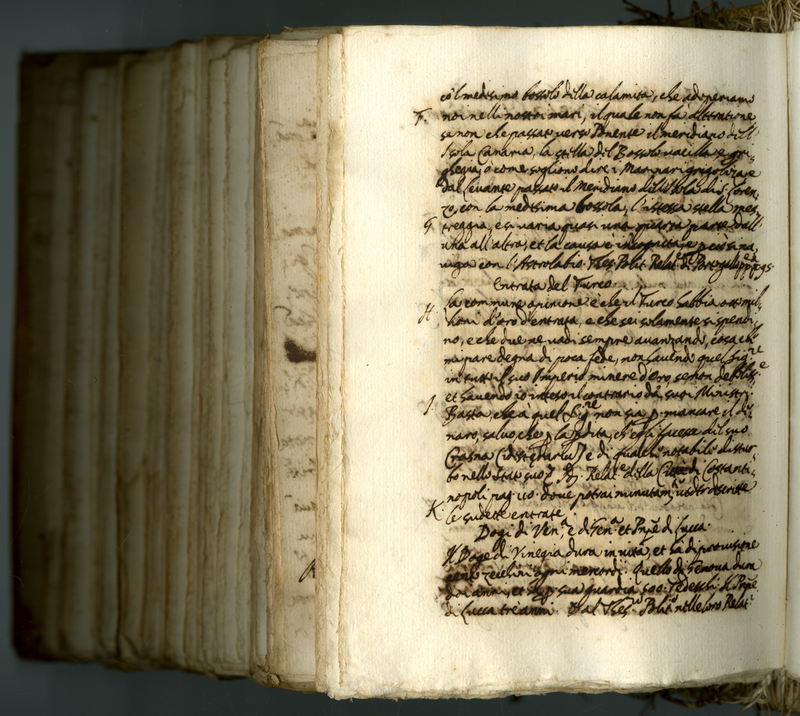 co'l medesimo bossolo della calamita, che adoperiamo
F. noi nelli nostri mari, il quale non fa alteratione
se non che passato verso Ponente il meridiano dell'
Isola Canaria, la stella del Bossolo vacilla e gri-
gheggia, ò come sogliono dire i Marinari grigoliza, e
dal Levante passato il Meridiano dell'Isola di S. Loren-
zo, con la medesima bossola, l'istessa stella maes-
G. treggia, e si varia quasi una quarta parte dall'
una all'altro, et la causa è incognita, e però si na-
viga con l'Astrolabio. Thes. Polit. Relat.e di Portogallo
Entrata del Turco.
H. La commune opinione è che il Turco habbia otto mil-
lioni d'oro d'entrata, e che sei solamente si spendi-
no, e che due ne vadi sempre avanzando, cosa ch'
mi pare degna di poca fede, non havendo quel Sig.re
in tutto il suo Imperio minere d'oro, se non
I. et havendo io inteso il contrario da suoi Ministri.
Basta, che à quel Sig.re non sia p. mancare il di-
naro, salvo che p. la p̄dita, ch'egli facesse del suo
e di qualche notabile distur-
bo nello stato suo. Relat.e della Città di Costanti-
nopoli pag. 110. dove potrai minutam.te descritte
K. le sudette entrate.
Dogi di Ven.a e di Gen.a et Pn̄pe di Lucca.
Il Doge di Vinegia dura in vita, et hà di provisione
cento zecchini ogni mercordì. Quello di Genova dura
doi anni, et hà p. sua guardia 500. Tedeschi. Il Pn̄pe
di Lucca tre anni. Dal Thes. Polit. nelle loro Relat.